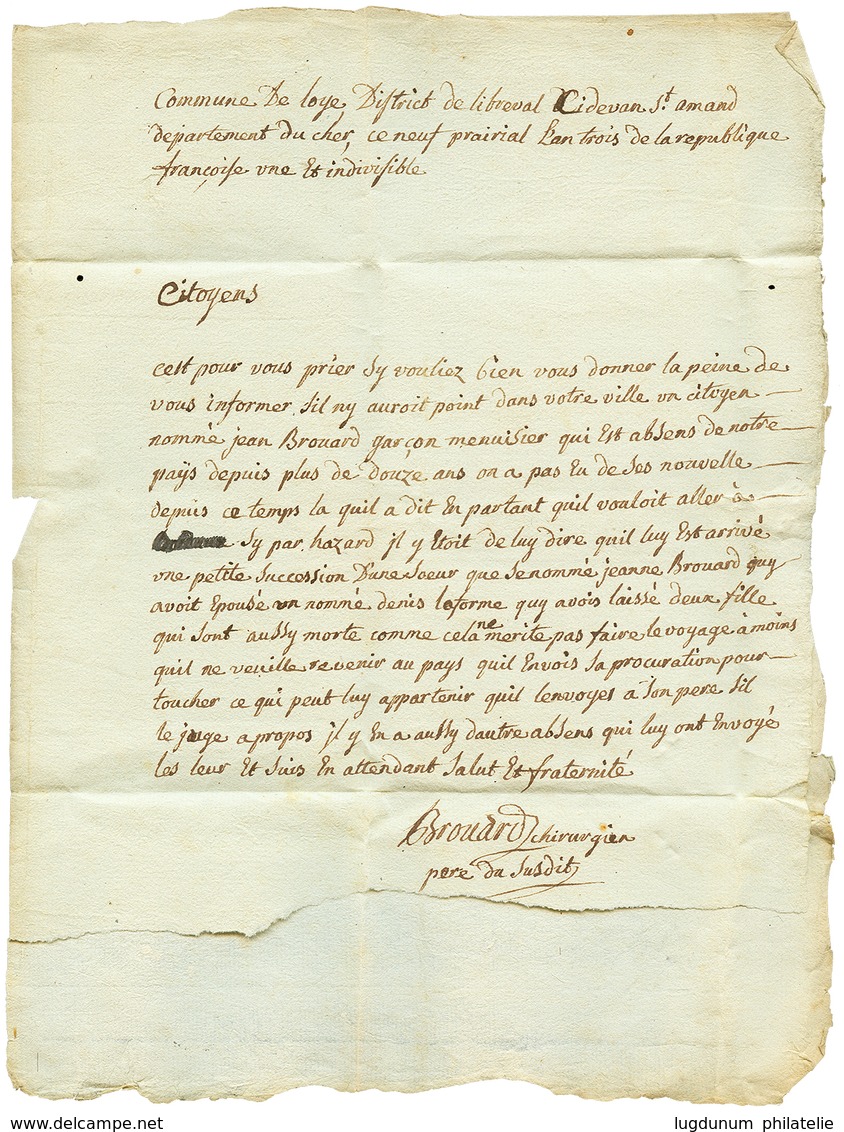 Commune De loye District de libreval Cidevan St. amand
departement du cher, ce neuf prairial L'an trois de la republique
françoise une Et indivisible
Citoyens
cest pour vous prier sy vouliez bien vous donner la peine de
vous informer sil ny auroit point dans votre ville un citoyen
nommé jean Brouard garçon menuisier qui Est absens de notre
paÿs depuis plus de douze ans on a pas Eu de ses nouvelle
depuis ce temps la quil a dit En partant quil vouloit aller à
sy par hazard jl y Etoit de luy dire quil luy Est arrivé
une petite succession D'une soeur que se nommé jeanne Brouard quy
avoit Epousé un nommé denis laforme quy avois laissé deux fille
qui sont aussy morte comme cela ne merite pas faire le voyage à moins
quil ne veuille revenir au pays quil Envois sa procuration pour
toucher ce qui peut luy appartenir quil lenvoyes a son pere sil
le juge apropos jl y En a aussy dautre absens qui luy ont Envoyé
les leur Et suis En attendant salut Et fraternité
Brouard chirurgien
pere du susdit
www.delcampe.net
lugdunum philatelie